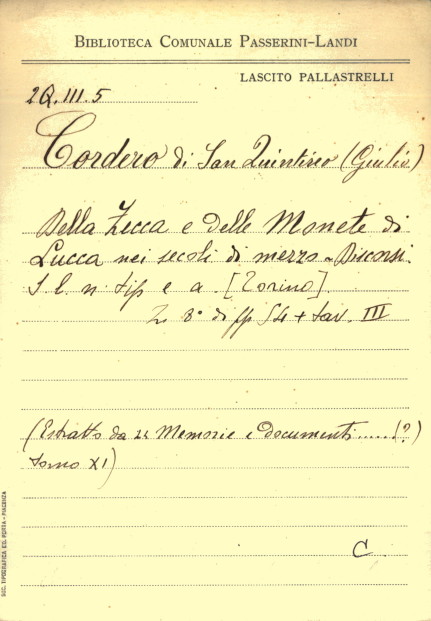 BIBLIOTECA COMUNALE PASSERINI-LANDI
LASCITO PALLASTRELLI
2Q.III.5
Cordero di San Quintino (Giulio)
Della Zecca e delle Monete di
Lucca nei secoli di mezzo - Discorsi.
S. l. n. tip e a. [Torino].
In 8° di pp 54 + tav. III
(Estratto da Memorie e documenti ..... (?)
tomo XI)
C.
SOC. TIPOGRAFICA ED. PORTA - PIACENZA